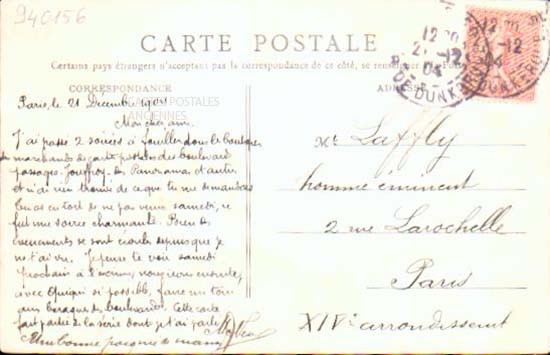 940156
CARTE POSTALE
Certains pays étrangers n'acceptant pas la correspondance de ce côté, se renseigner
CORRESPONDANCE
ADRESSE
CARTES POSTALES
ANCIENNES
12
21 - 12
04
R. DE DUNKERQUE
Paris, le 21 Décembre 1904
Mon cher ami.
J'ai passé 2 soirées à fouiller dans les boutiques
de marchands de carte postales des boulevards
passages Jouffroy, des Panoramas, d'autin
et n'ai rien trouvé de ce que tu me demandes
tu as eu tort de ne pas venir samedi, ce
fut une soirée charmante. Bien des
événements se sont écoulés depuis que je
ne t'ai vu. Je pense te voir samedi
prochain à 8 heures, nous irons ensuite,
avec si possible, faire un tour
aux baraques des boulevards. Cette carte
fait partie de la série dont je t'ai parlé
Une bonne poignée de mains
Mr Laffly
homme éminent
2 rue Larochelle
Paris
XIVe arrondissement